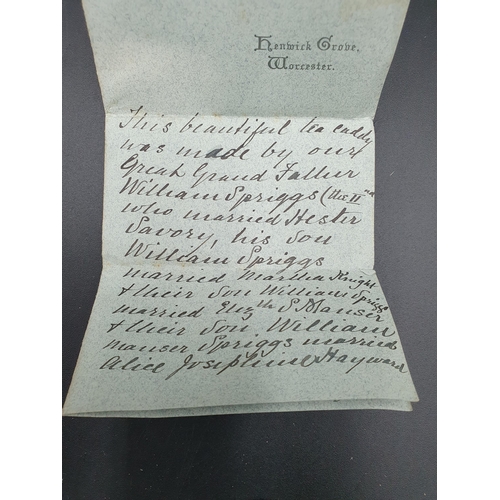 Henwick Grove,
Worcester.
This beautiful tea caddy
was made by our
Great Grand Father
William Spriggs (the IInd
who married Hester
Savory, his son
William Spriggs
married Martha Knight
& their son William Spriggs
married Elizth S Manser
& their son William
manser Spriggs married
Alice Josephine Hayward